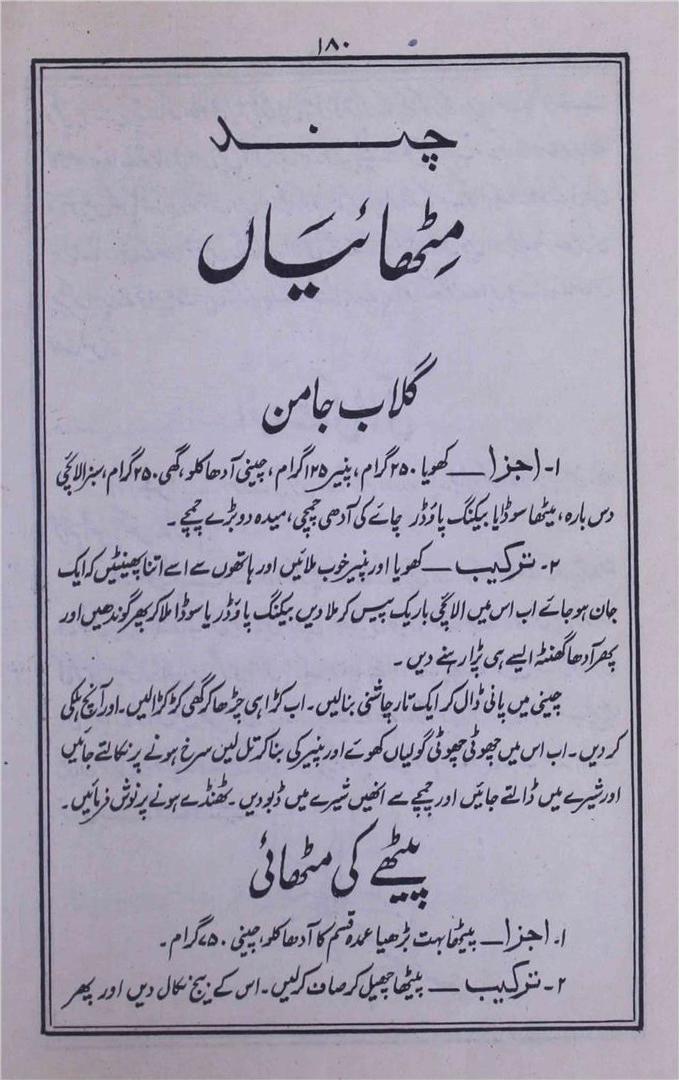 ۱۸۰
چند
مٹھائیاں
گلاب جامن
۱- اجزا — کھویا ۲۵۰ گرام، پنیر ۱۲۵ گرام، چینی آدھا کلو، گھی ۲۵۰ گرام، سبز الائچی
دس بارہ، میٹھا سوڈا یا بیکنگ پاؤڈر چائے کی آدھی چمچی، میدہ دو بڑے چمچے۔
۲- ترکیب — کھویا اور پنیر خوب ملائیں اور ہاتھوں سے اسے اتنا پھینٹیں کہ ایک
جان ہو جائے اب اس میں الائچی باریک پیس کر ملا دیں بیکنگ پاؤڈر یا سوڈا ملا کر پھر گوندھیں اور
پھر آدھا گھنٹہ ایسے ہی پڑا رہنے دیں۔
چینی میں پانی ڈال کر ایک تار چاشنی بنالیں۔ اب کڑاہی چڑھا کر گھی کڑکڑالیں۔ اور آنچ ہلکی
کر دیں۔ اب اس میں چھوٹی چھوٹی گولیاں کھوئے اور پنیر کی بنا کر تل لیں سرخ ہونے پر نکالتے جائیں
اور شیرے میں ڈالتے جائیں اور چمچے سے انھیں شیرے میں ڈبو دیں۔ ٹھنڈے ہونے پر نوش فرمائیں۔
پیٹھے کی مٹھائی
۱- اجزا — پیٹھا بہت بڑھیا عمدہ قسم کا آدھا کلو، چینی ۷۵۰ گرام۔
۲- ترکیب — پیٹھا چھیل کر صاف کر لیں۔ اس کے بیج نکال دیں اور پھر